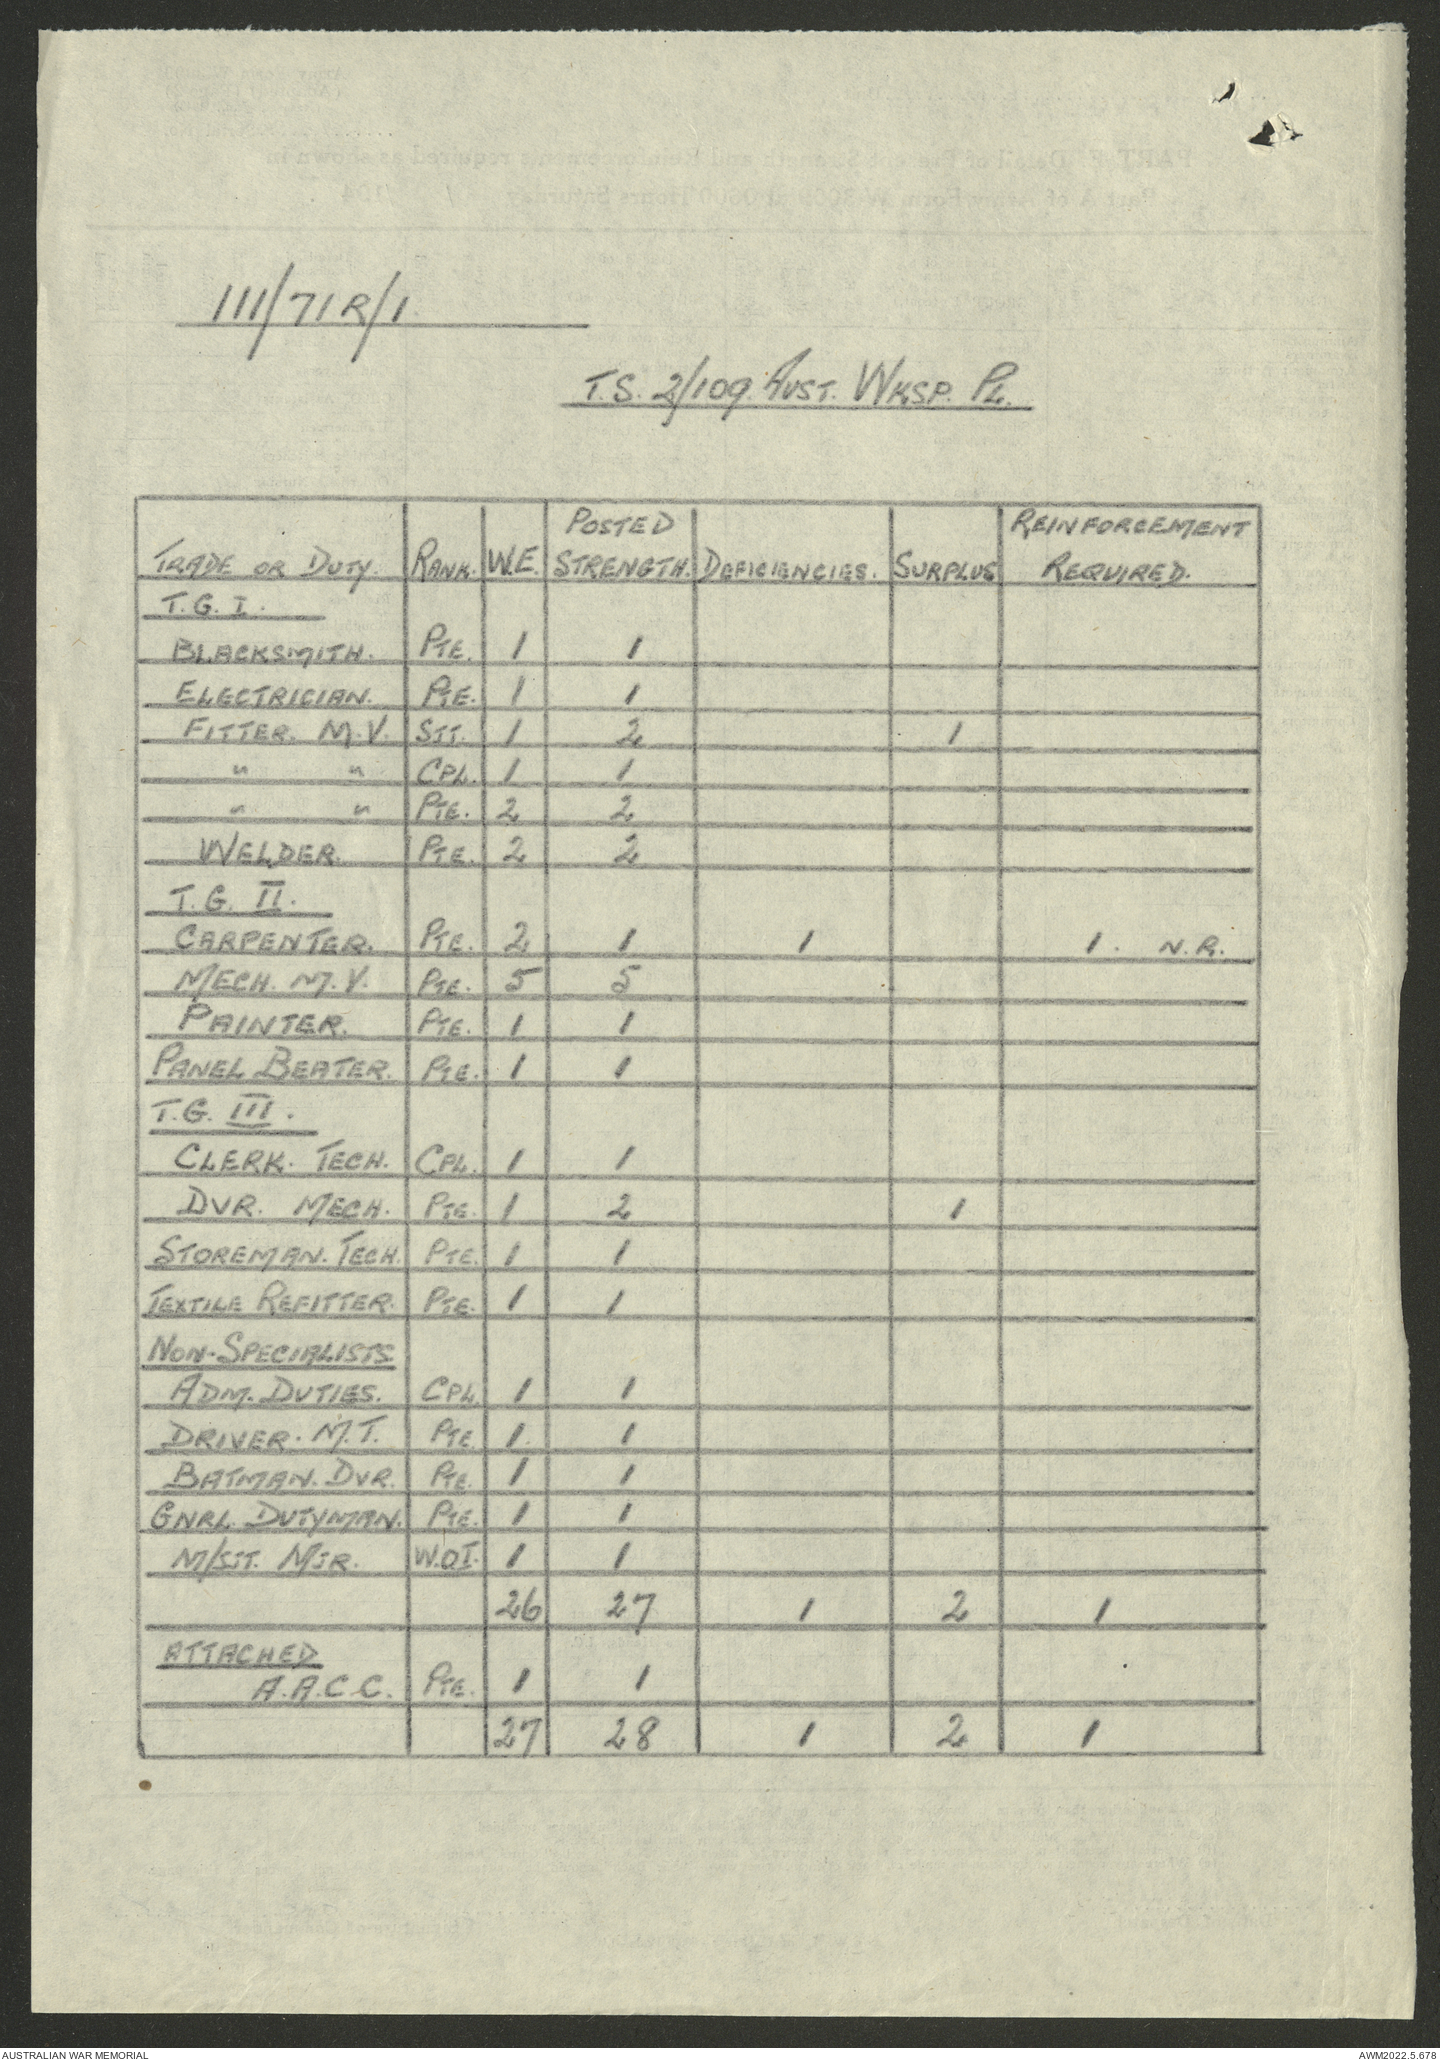 111/71R/1.
T.S. 2/109 AUST. WKSP. PL.
TRADE OR DUTY. RANK. W.E. POSTED STRENGTH. DEFICIENCIES. SURPLUS REINFORCEMENT REQUIRED.
T.G. I.
BLACKSMITH. PTE. 1 1
ELECTRICIAN. PTE. 1 1
FITTER. M.V. SJT. 1 2 1
" " CPL. 1 1
" " PTE. 2 2
WELDER. PTE. 2 2
T.G. II.
CARPENTER. PTE. 2 1 1 1. N.R.
MECH. M.V. PTE. 5 5
PAINTER. PTE. 1 1
PANEL BEATER. PTE. 1 1
T.G. III.
CLERK. TECH. CPL. 1 1
DVR. MECH. PTE. 1 2 1
STOREMAN. TECH. PTE. 1 1
TEXTILE REFITTER. PTE. 1 1
NON-SPECIALISTS
ADM. DUTIES. CPL. 1 1
DRIVER. M.T. PTE 1 1
BATMAN. DVR. PTE. 1 1
GNRL. DUTYMAN. PTE. 1 1
M/SJT. MJR. W.O I. 1 1
26 27 1 2 1
ATTACHED
A.A.C.C. PTE. 1 1
27 28 1 2 1
AUSTRALIAN WAR MEMORIAL
AWM2022.5.678